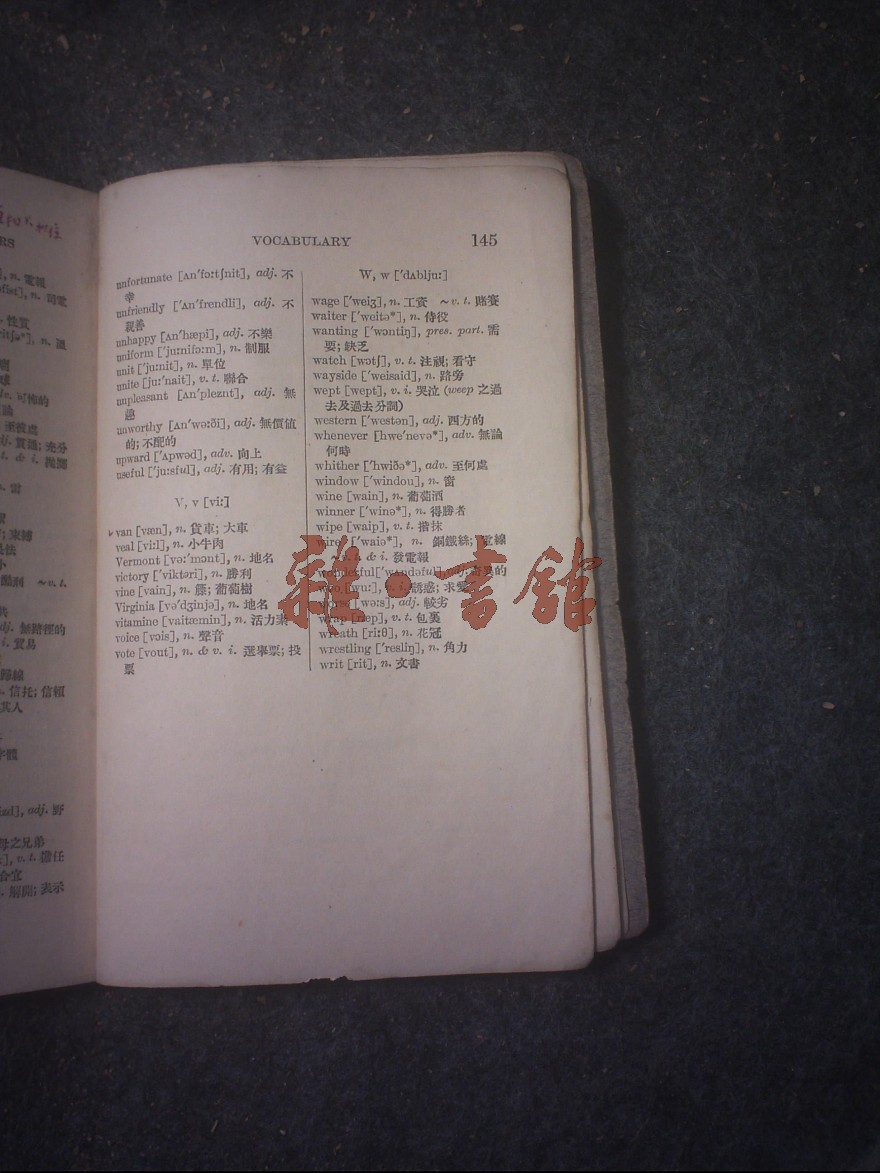 RS
n. 電報
性質
可怖的
論
至彼處
充分
雷
束縛
v.t.
無路徑的
貿易
歸線
信托; 信賴
其人
字體
adj. 野
母之兄弟
v. t. 擔任
合宜
解開; 表示
VOCABULARY 145
unfortunate [ʌn'fɔ:tʃnit], adj. 不
幸
unfriendly ['ʌn'frendli], adj. 不
親善
unhappy [ʌn'hæpi], adj. 不樂
uniform ['ju:nifɔ:m], n. 制服
unit ['ju:nit], n. 單位
unite [ju:'nait], v. t. 聯合
unpleasant [ʌn'pleznt], adj. 無
趣
unworthy [ʌn'wə:ði], adj. 無價値
的; 不配的
upward ['ʌpwəd], adv. 向上
useful ['ju:sful], adj. 有用; 有益
V, v [vi:]
van [væn], n. 貨車; 大車
veal [vi:l], n. 小牛肉
Vermont [və:'mɔnt], n. 地名
victory ['viktəri], n. 勝利
vine [vain], n. 藤; 葡萄樹
Virginia [və'dʒinjə], n. 地名
vitamine [vaitæmin], n. 活力素
voice [vɔis], n. 聲音
vote [vout], n. & v. i. 選舉票; 投
票
W, w ['dʌblju:]
wage ['weiʒ], n. 工資 ~v. t. 賭賽
waiter ['weitə*], n. 侍役
wanting ['wɔntiŋ], pres. part. 需
要; 缺乏
watch [wɔtʃ], v. t. 注視; 看守
wayside ['weisaid], n. 路旁
wept [wept], v. i. 哭泣 (weep 之過
去及過去分詞)
western ['westən], adj. 西方的
whenever [hwe'nevə*], adv. 無論
何時
whither ['hwiðə*], adv. 至何處
window ['windou], n. 窗
wine [wain], n. 葡萄酒
winner ['winə*], n. 得勝者
wipe [waip], v. t. 揩抹
wire ['waiə*], n. 銅鐵絲; 電線
~v. t. & i. 發電報
wonderful ['wʌndəful], adj. 奇異的
woo [wu:], v. t. 誘惑; 求愛
worse [wə:s], adj. 較劣
wrap [ræp], v. t. 包裹
wreath [ri:θ], n. 花冠
wrestling ['resliŋ], n. 角力
writ [rit], n. 文書
雜·書館